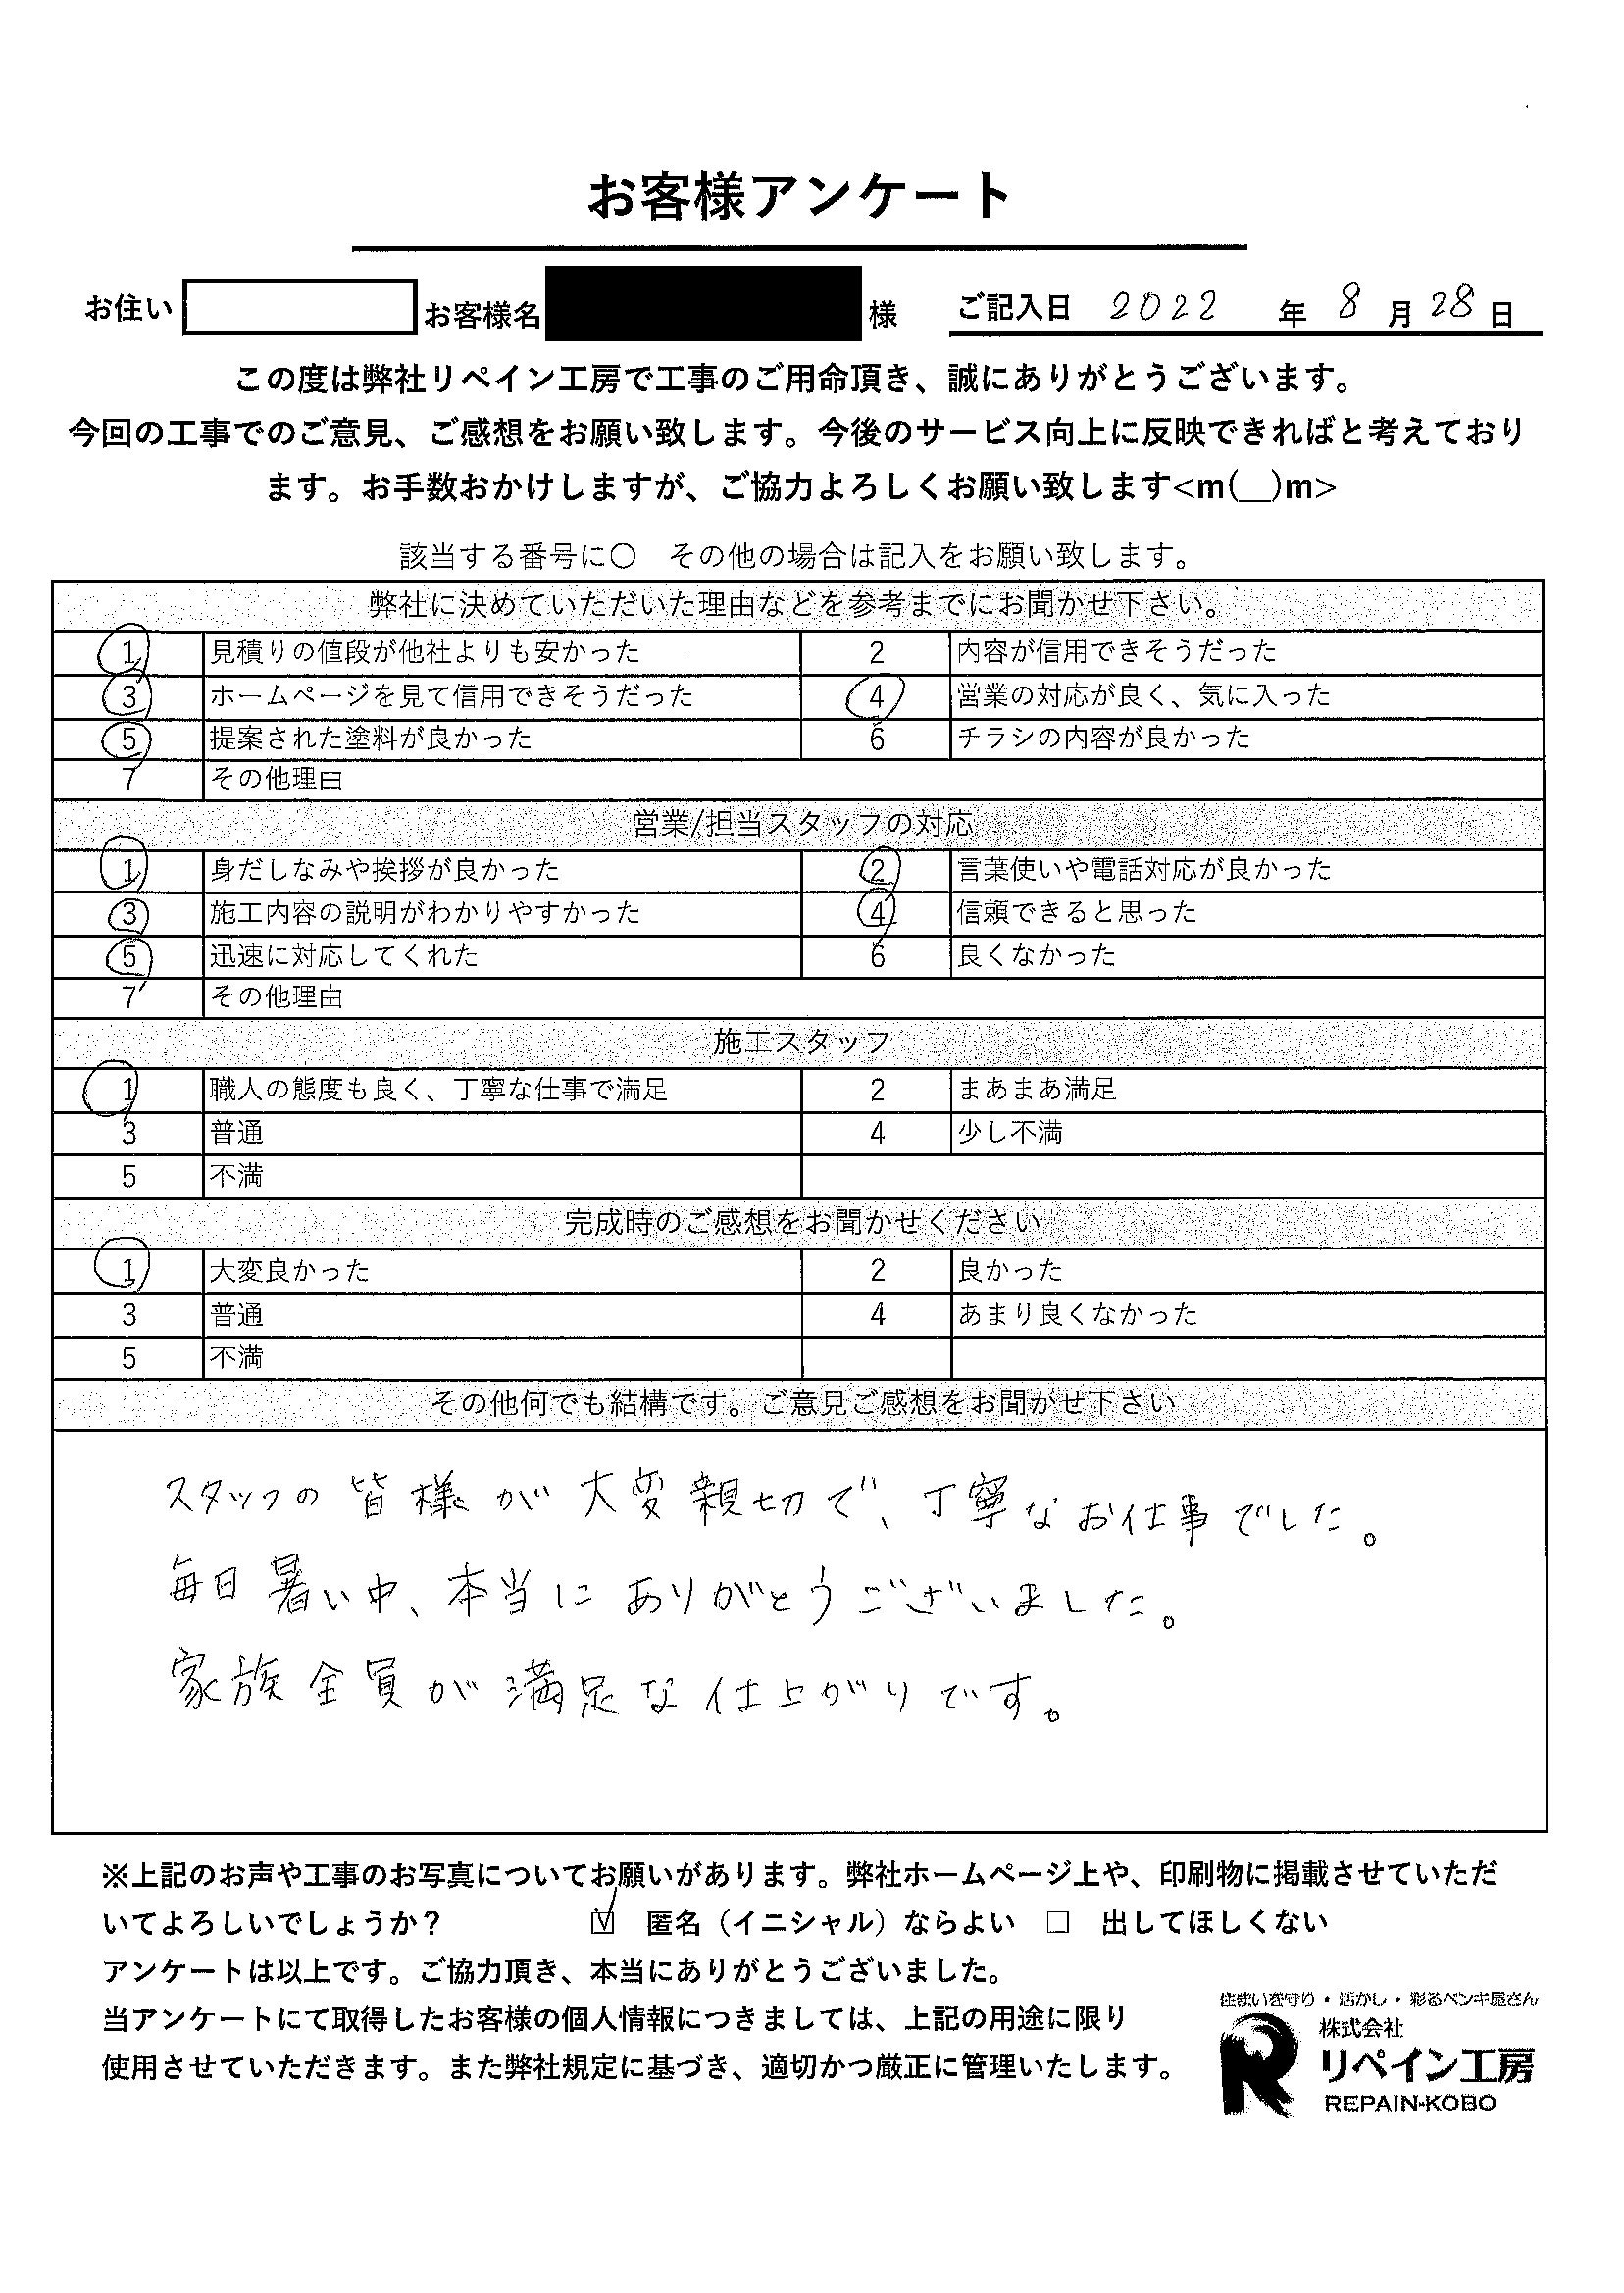 お客様アンケート
お住い お客様名 様 ご記入日 2022 年 8 月 28 日
この度は弊社リペイン工房で工事のご用命頂き、誠にありがとうございます。
今回の工事でのご意見、ご感想をお願い致します。今後のサービス向上に反映できればと考えており
ます。お手数おかけしますが、ご協力よろしくお願い致します<m(__)m>
該当する番号に〇 その他の場合は記入をお願い致します。
弊社に決めていただいた理由などを参考までにお聞かせ下さい。
1 見積りの値段が他社よりも安かった 2 内容が信用できそうだった
3 ホームページを見て信用できそうだった 4 営業の対応が良く、気に入った
5 提案された塗料が良かった 6 チラシの内容が良かった
7 その他理由
営業/担当スタッフの対応
1 身だしなみや挨拶が良かった 2 言葉使いや電話対応が良かった
3 施工内容の説明がわかりやすかった 4 信頼できると思った
5 迅速に対応してくれた 6 良くなかった
7 その他理由
施工スタッフ
1 職人の態度も良く、丁寧な仕事で満足 2 まあまあ満足
3 普通 4 少し不満
5 不満
完成時のご感想をお聞かせください
1 大変良かった 2 良かった
3 普通 4 あまり良くなかった
5 不満
その他何でも結構です。ご意見ご感想をお聞かせ下さい
スタッフの皆様が大変親切で、丁寧なお仕事でした。
毎日暑い中、本当にありがとうございました。
家族全員が満足な仕上がりです。
※上記のお声や工事のお写真についてお願いがあります。弊社ホームページ上や、印刷物に掲載させていただ
いてよろしいでしょうか？ ☑ 匿名（イニシャル）ならよい □ 出してほしくない
アンケートは以上です。ご協力頂き、本当にありがとうございました。
当アンケートにて取得したお客様の個人情報につきましては、上記の用途に限り
使用させていただきます。また弊社規定に基づき、適切かつ厳正に管理いたします。
住まいを守り・活かし・彩るペンキ屋さん
株式会社
リペイン工房
REPAIN-KOBO